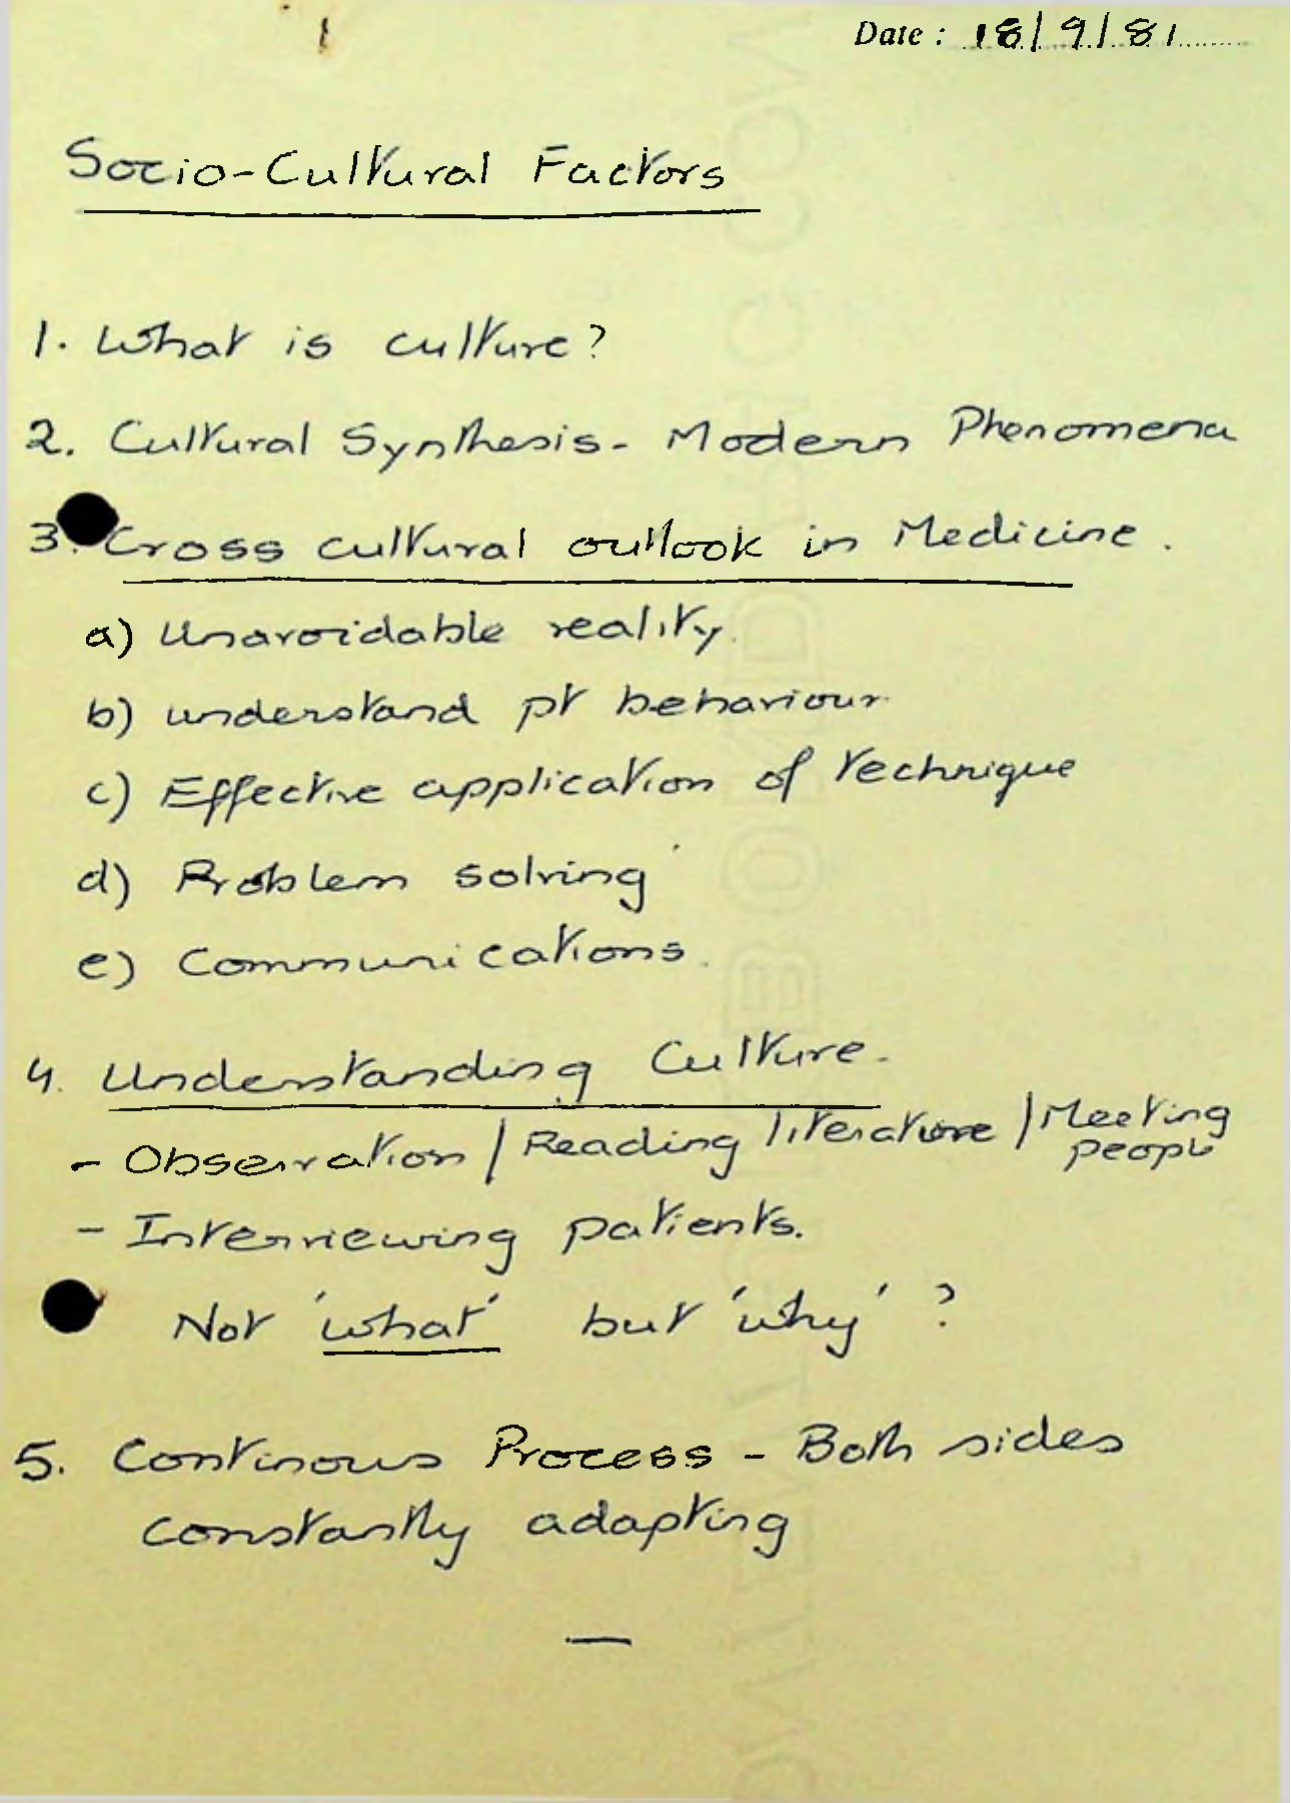 Date : 18/9/81
Socio-Cultural Factors
1. What is culture?
2. Cultural Synthesis - Modern Phenomena
3. Cross cultural outlook in Medicine.
a) Unavoidable reality.
b) understand pt behaviour.
c) Effective application of technique
d) Problem solving
e) Communications.
4. Understanding Culture.
- Observation / Reading literature / Meeting
people
- Interviewing patients.
Not 'what' but 'why' ?
5. Continous Process - Both sides
constantly adapting